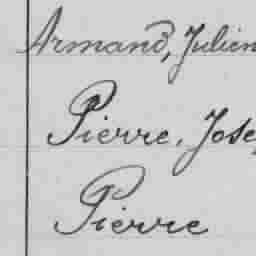 Armand, Julien
Pierre, Jose
Pierre